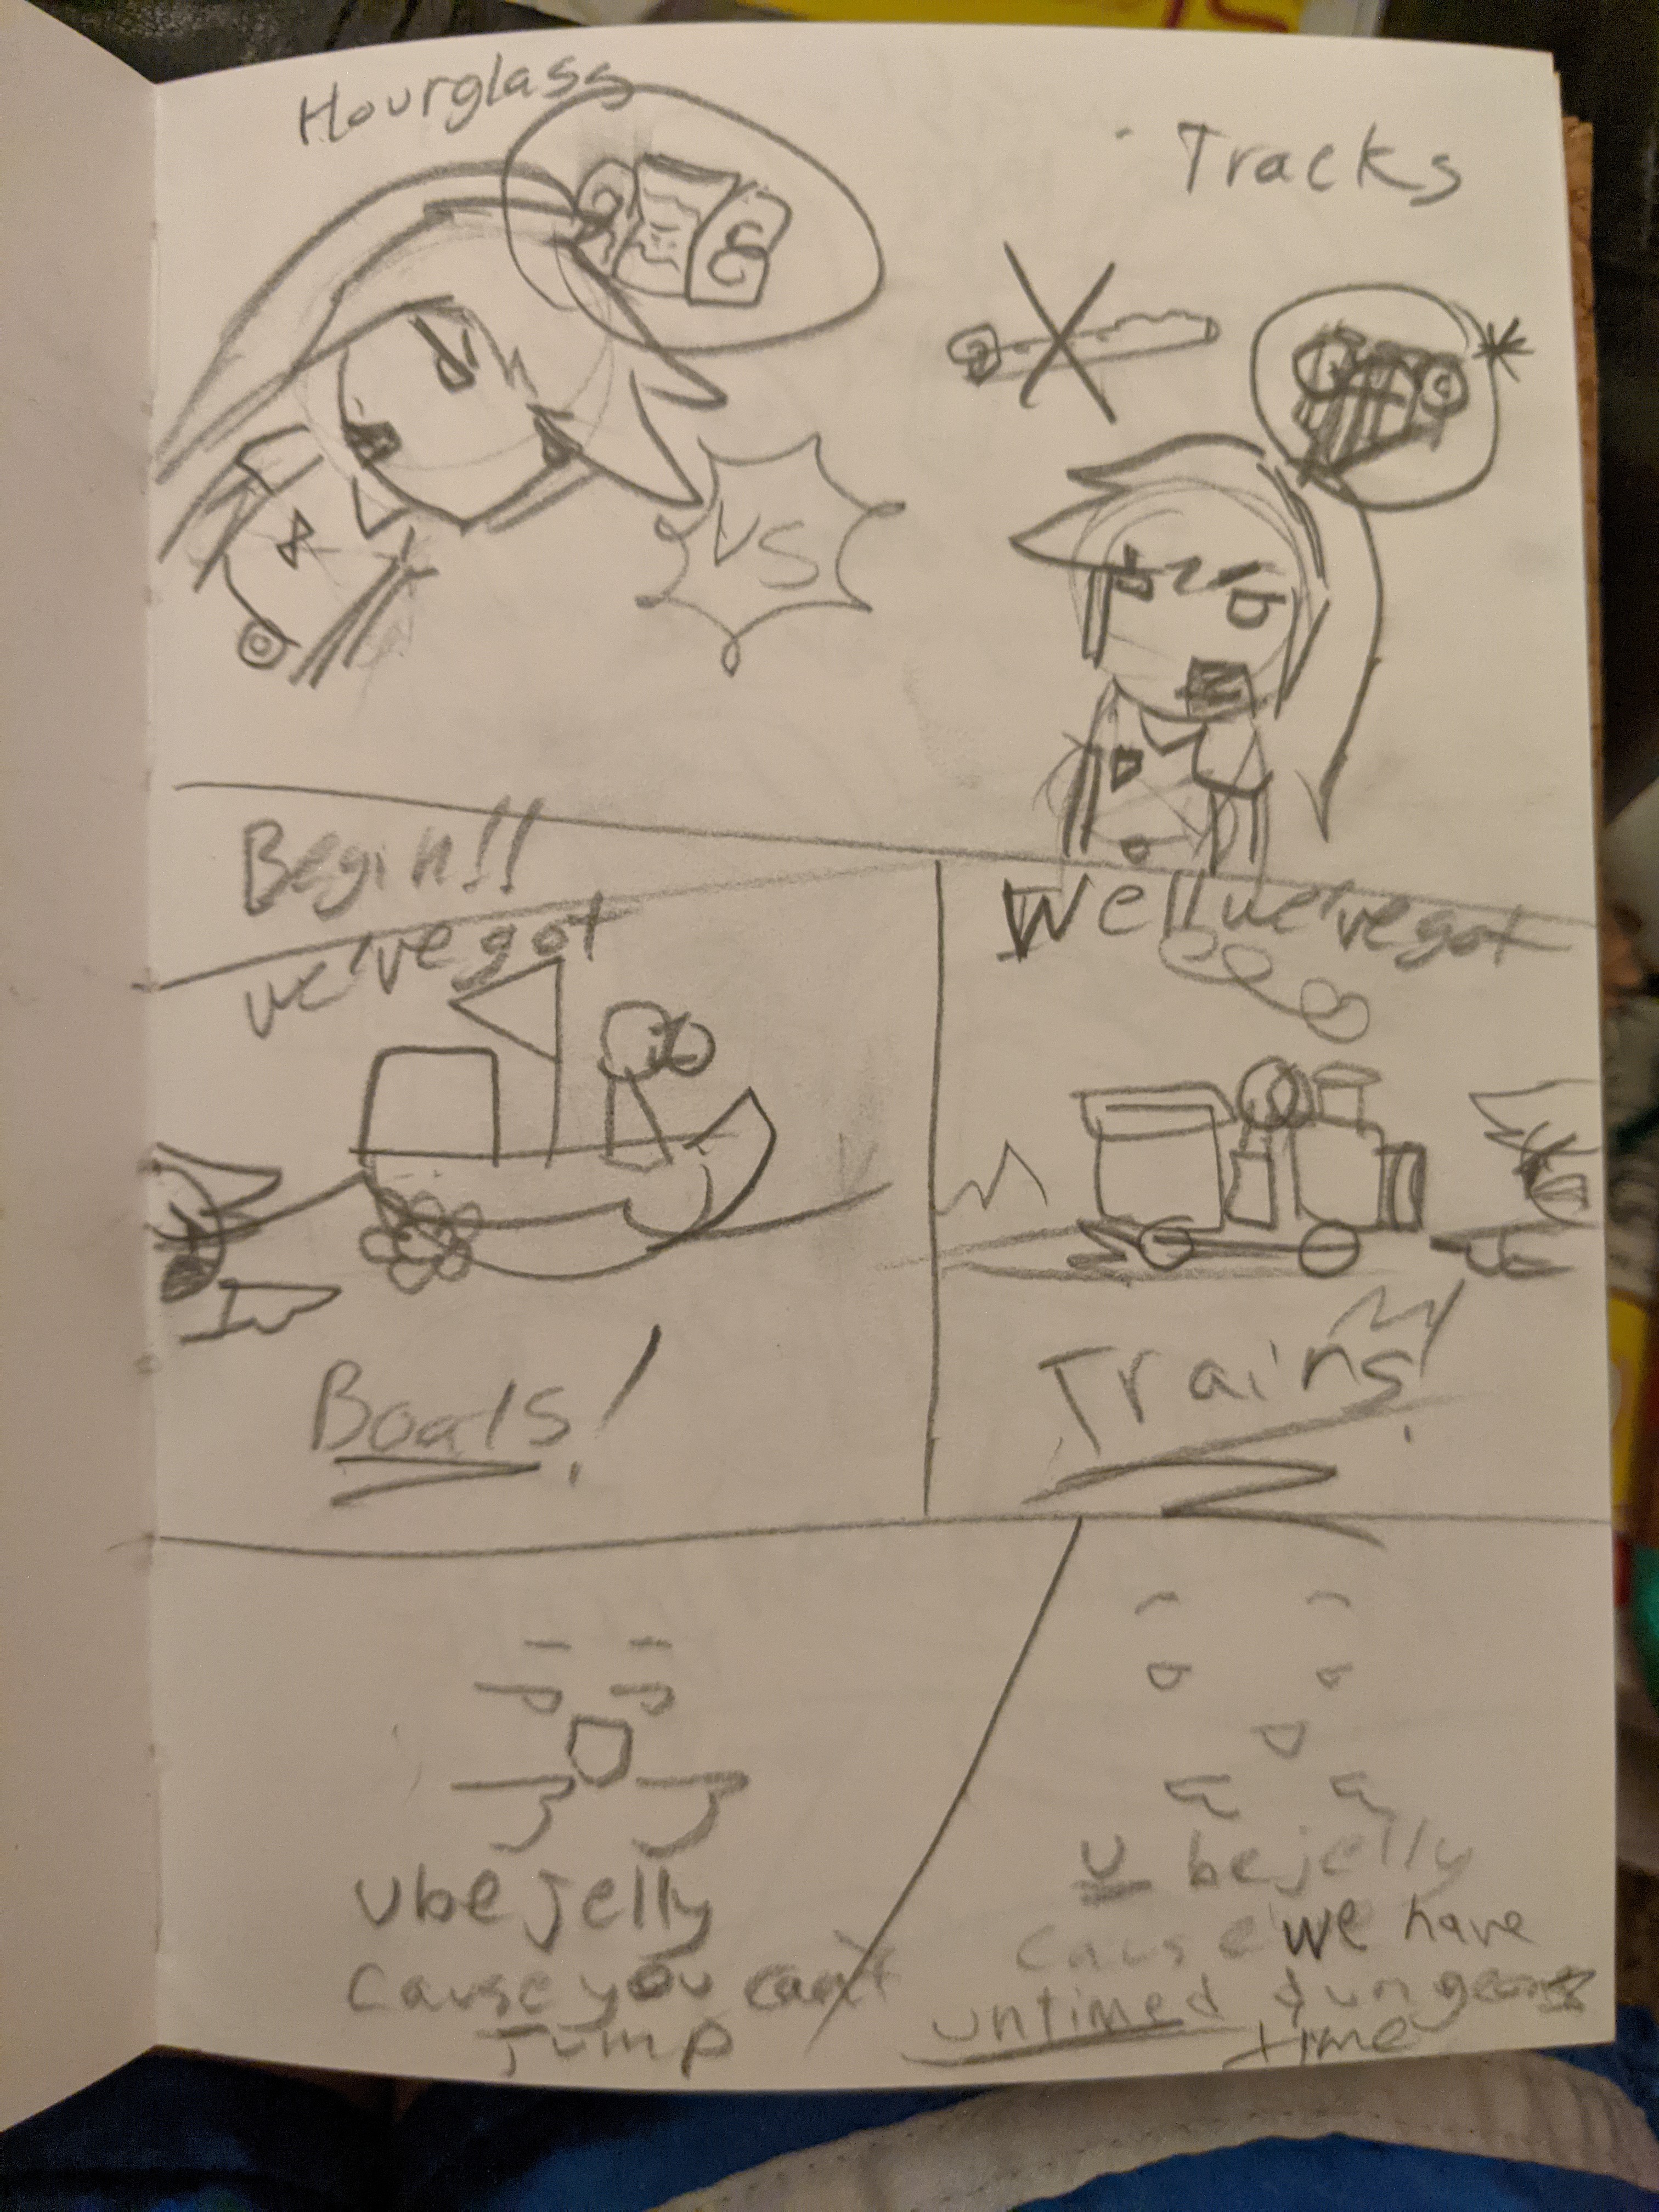 Hourglass
Tracks
VS
Begin!!
we've got
Boats!
Well we've got
Trains!
U be jelly
cause you can't
Jump
U be jelly
cause we have
untimed dungeons
time